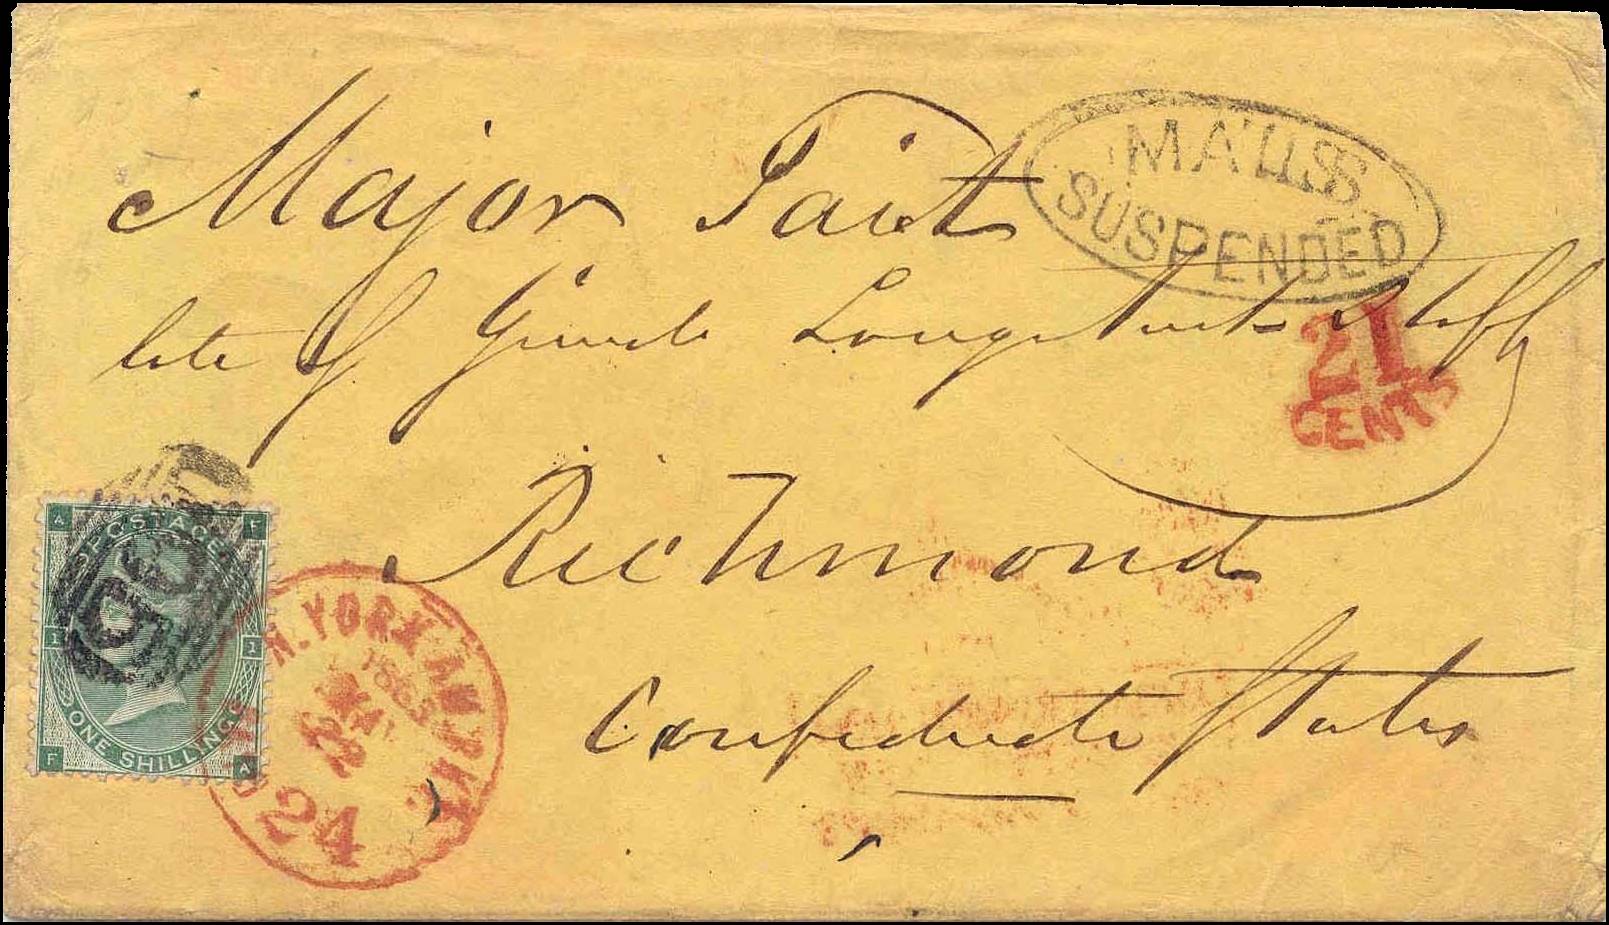 Major Tait
MAILS
SUSPENDED
late of Genrl Longstreets Staff
21
CENTS
Richmond
Confederate States
POSTAGE
ONE SHILLING
A F
1 1
F A
N. YORK AM. PKT.
1863
MAY
24